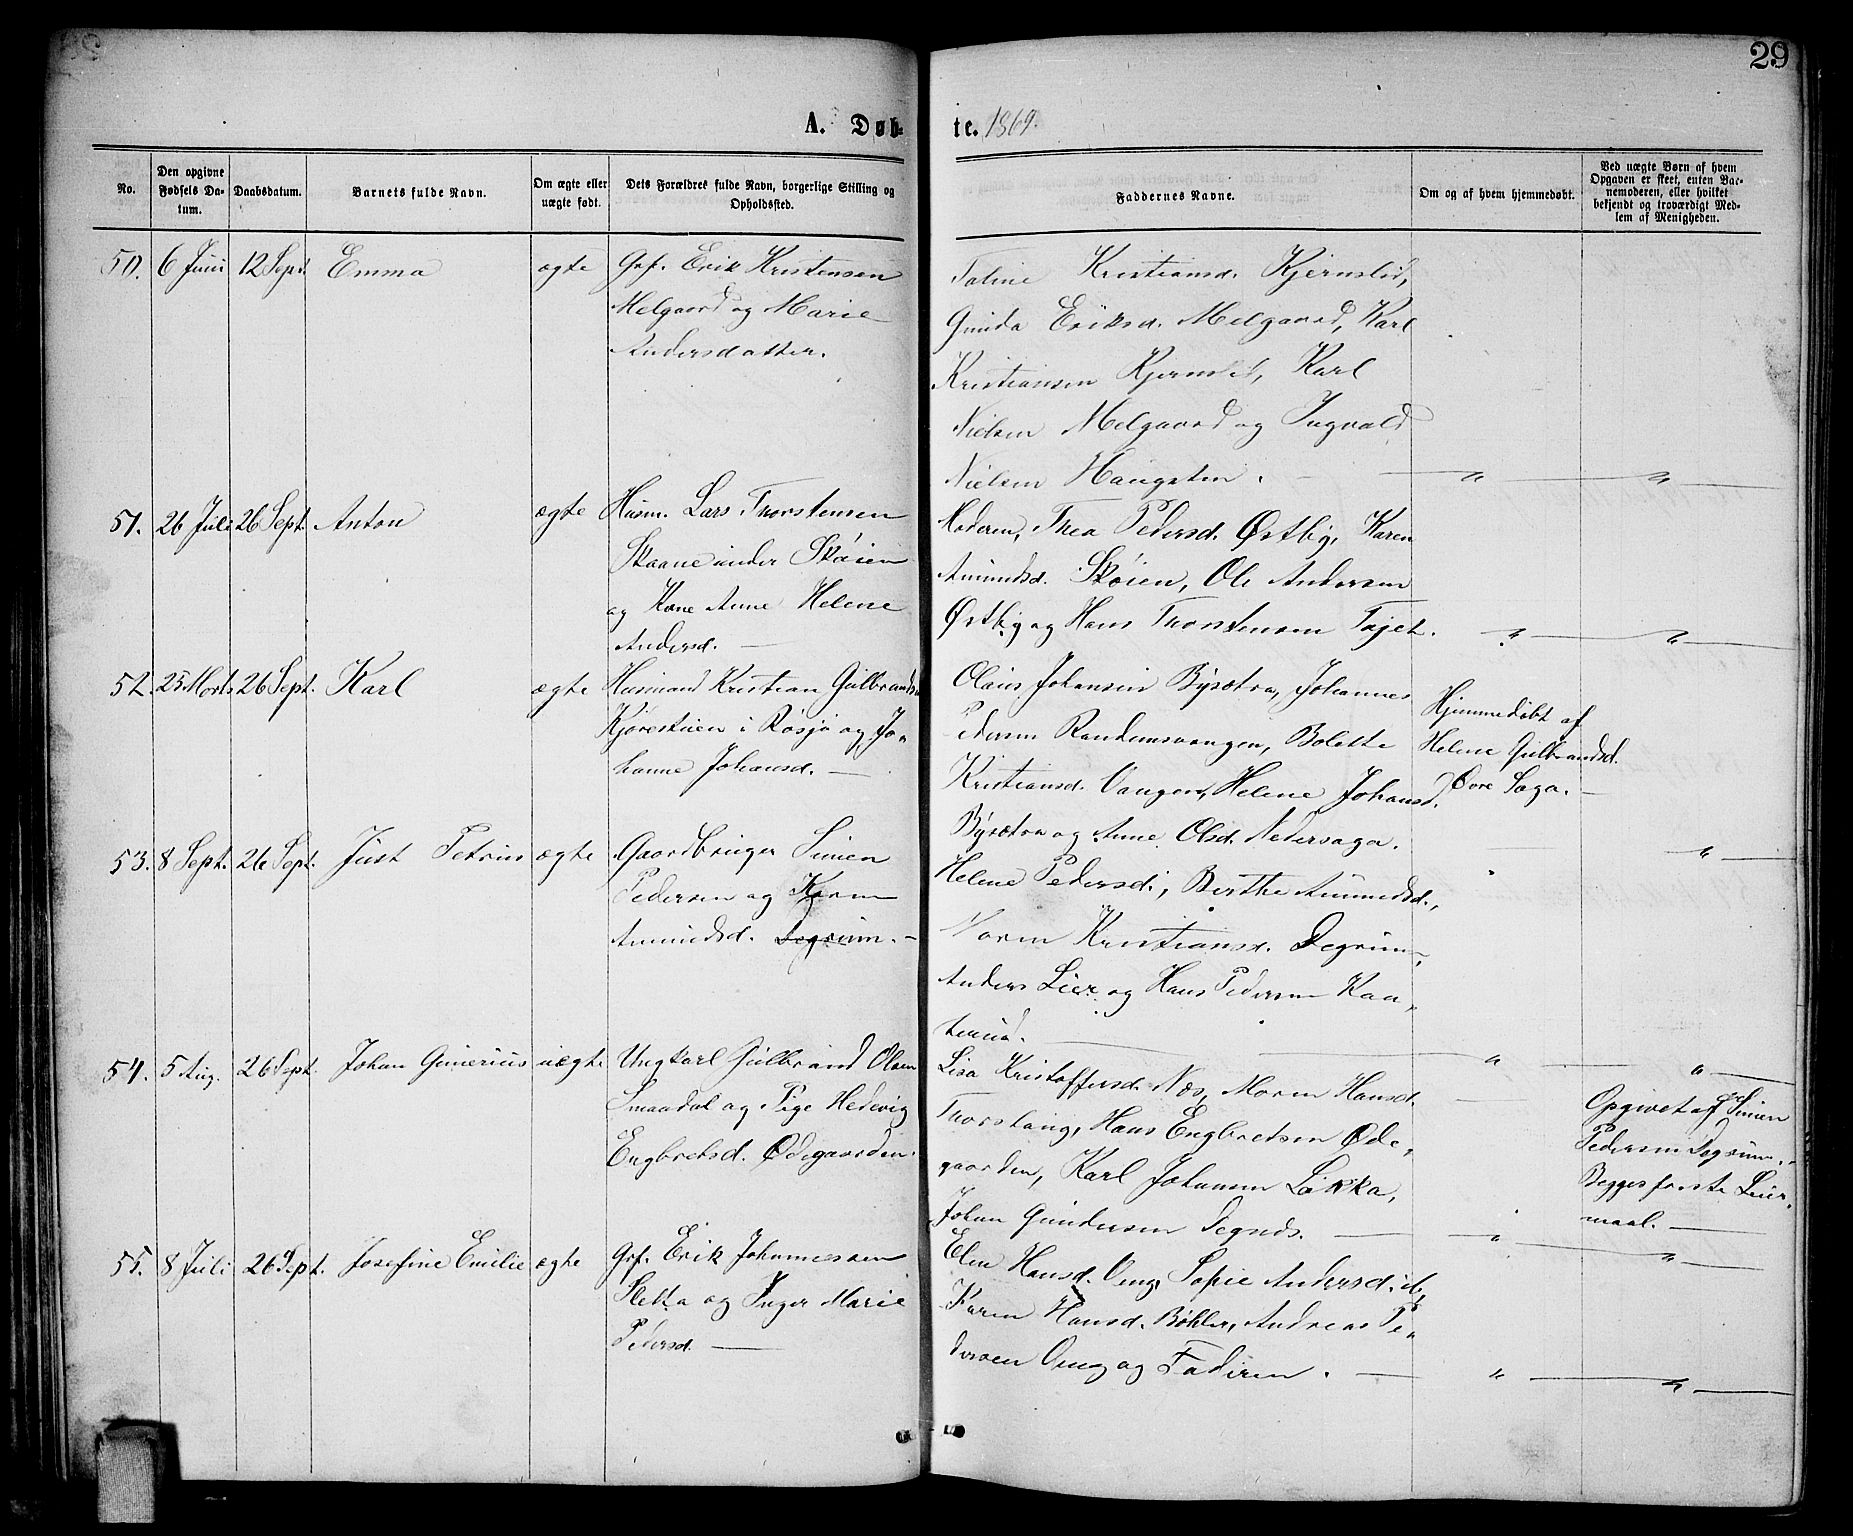 29
A. Døb- te. 1869.
No.
Den opgivne Fødsels Da-tum.
Daabsdatum.
Barnets fulde Navn.
Om ægte eller uægte født.
Dets Forældres fulde Navn, borgerlige Stilling og Opholdsted.
Faddernes Navne.
Om og af hvem hjemmedøbt.
Ved uægte Børn af hvem Opgaven er skeet, enten Bar-nemoderen, eller hvilket bekjendt og troværdigt Med-lem af Menigheden.
50. 6 Juni 12 Sept. Emma ægte
Grf. Erik Kristensen
Melgaard og Marie
Andersdatter.
Kristiansd. Kjernslid,
Gunda Eriksd. Melgaard, Karl
Kristiansen Kjernslid, Karl
Nielsen Melgaard og Ingvald
Nielsen Haugsten. — " — " —
51. 26 Juli 26 Sept. Anton ægte
Husm. Lars Thorstensen
Skaane under Skøien
og Kone Anne Helene
Andersd. —
Moderen, Thea Pedersd. Østby, Karen
Amundsd. Skøien, Ole Andersen
Østby og Hans Thorstensen Tajet. " — " —
52. 25 Marts 26 Sept. Karl ægte
Husmand Kristian Gulbrandsen
Kjørestuen i Røsjø og Jo-
hanne Johansd. —
Olaus Johansen Bysætra, Johannes
Pedersen Randemsvangen, Bolette
Kristiansd. Vangen, Helene Johansd.
Bysætra og Anne Olsd. Nedersaga.
Hjemmedøbt af
Helene Gulbrandsd.
Øvre Saga. —
" —
53. 8 Sept. 26 Sept. Just Petrius ægte
Gaardbruger Simen
Pedersen og Karen
Amundsd. Døgrum. —
Helene Pedersd., Berthe Amundsd.,
Maren Kristiansd. Døgrum,
Anders Lier og Hans Pedersen Kaa-
terud. — " — " —
54. 5 Aug. 26 Sept. Johan Gunerius uægte
Ungkarl Gulbrand Olsen
Smaadal og Pige Hedevig
Engbretsd. Ødegaarden.
Lisa Kristoffersd. Næs, Maren Hansd.
Thorshaug, Hans Engbretsen Øde-
gaarden, Karl Johansen Løkka,
Johan Gundersen Degnds. — " —
Opgivet af Simen
Pedersen Døgrum. —
Begges første Leier-
maal. —
" —
55. 8 Juli 26 Sept. Josefine Emilie ægte
Grf. Erik Johannesen
Sletta og Inger Marie
Pedersd. —
Elen Hansd. Omg, Sofie Andersd. ib,
Karen Hansd. Bøhler, Andreas Pe-
dersen Omg og Faderen. — " — " —